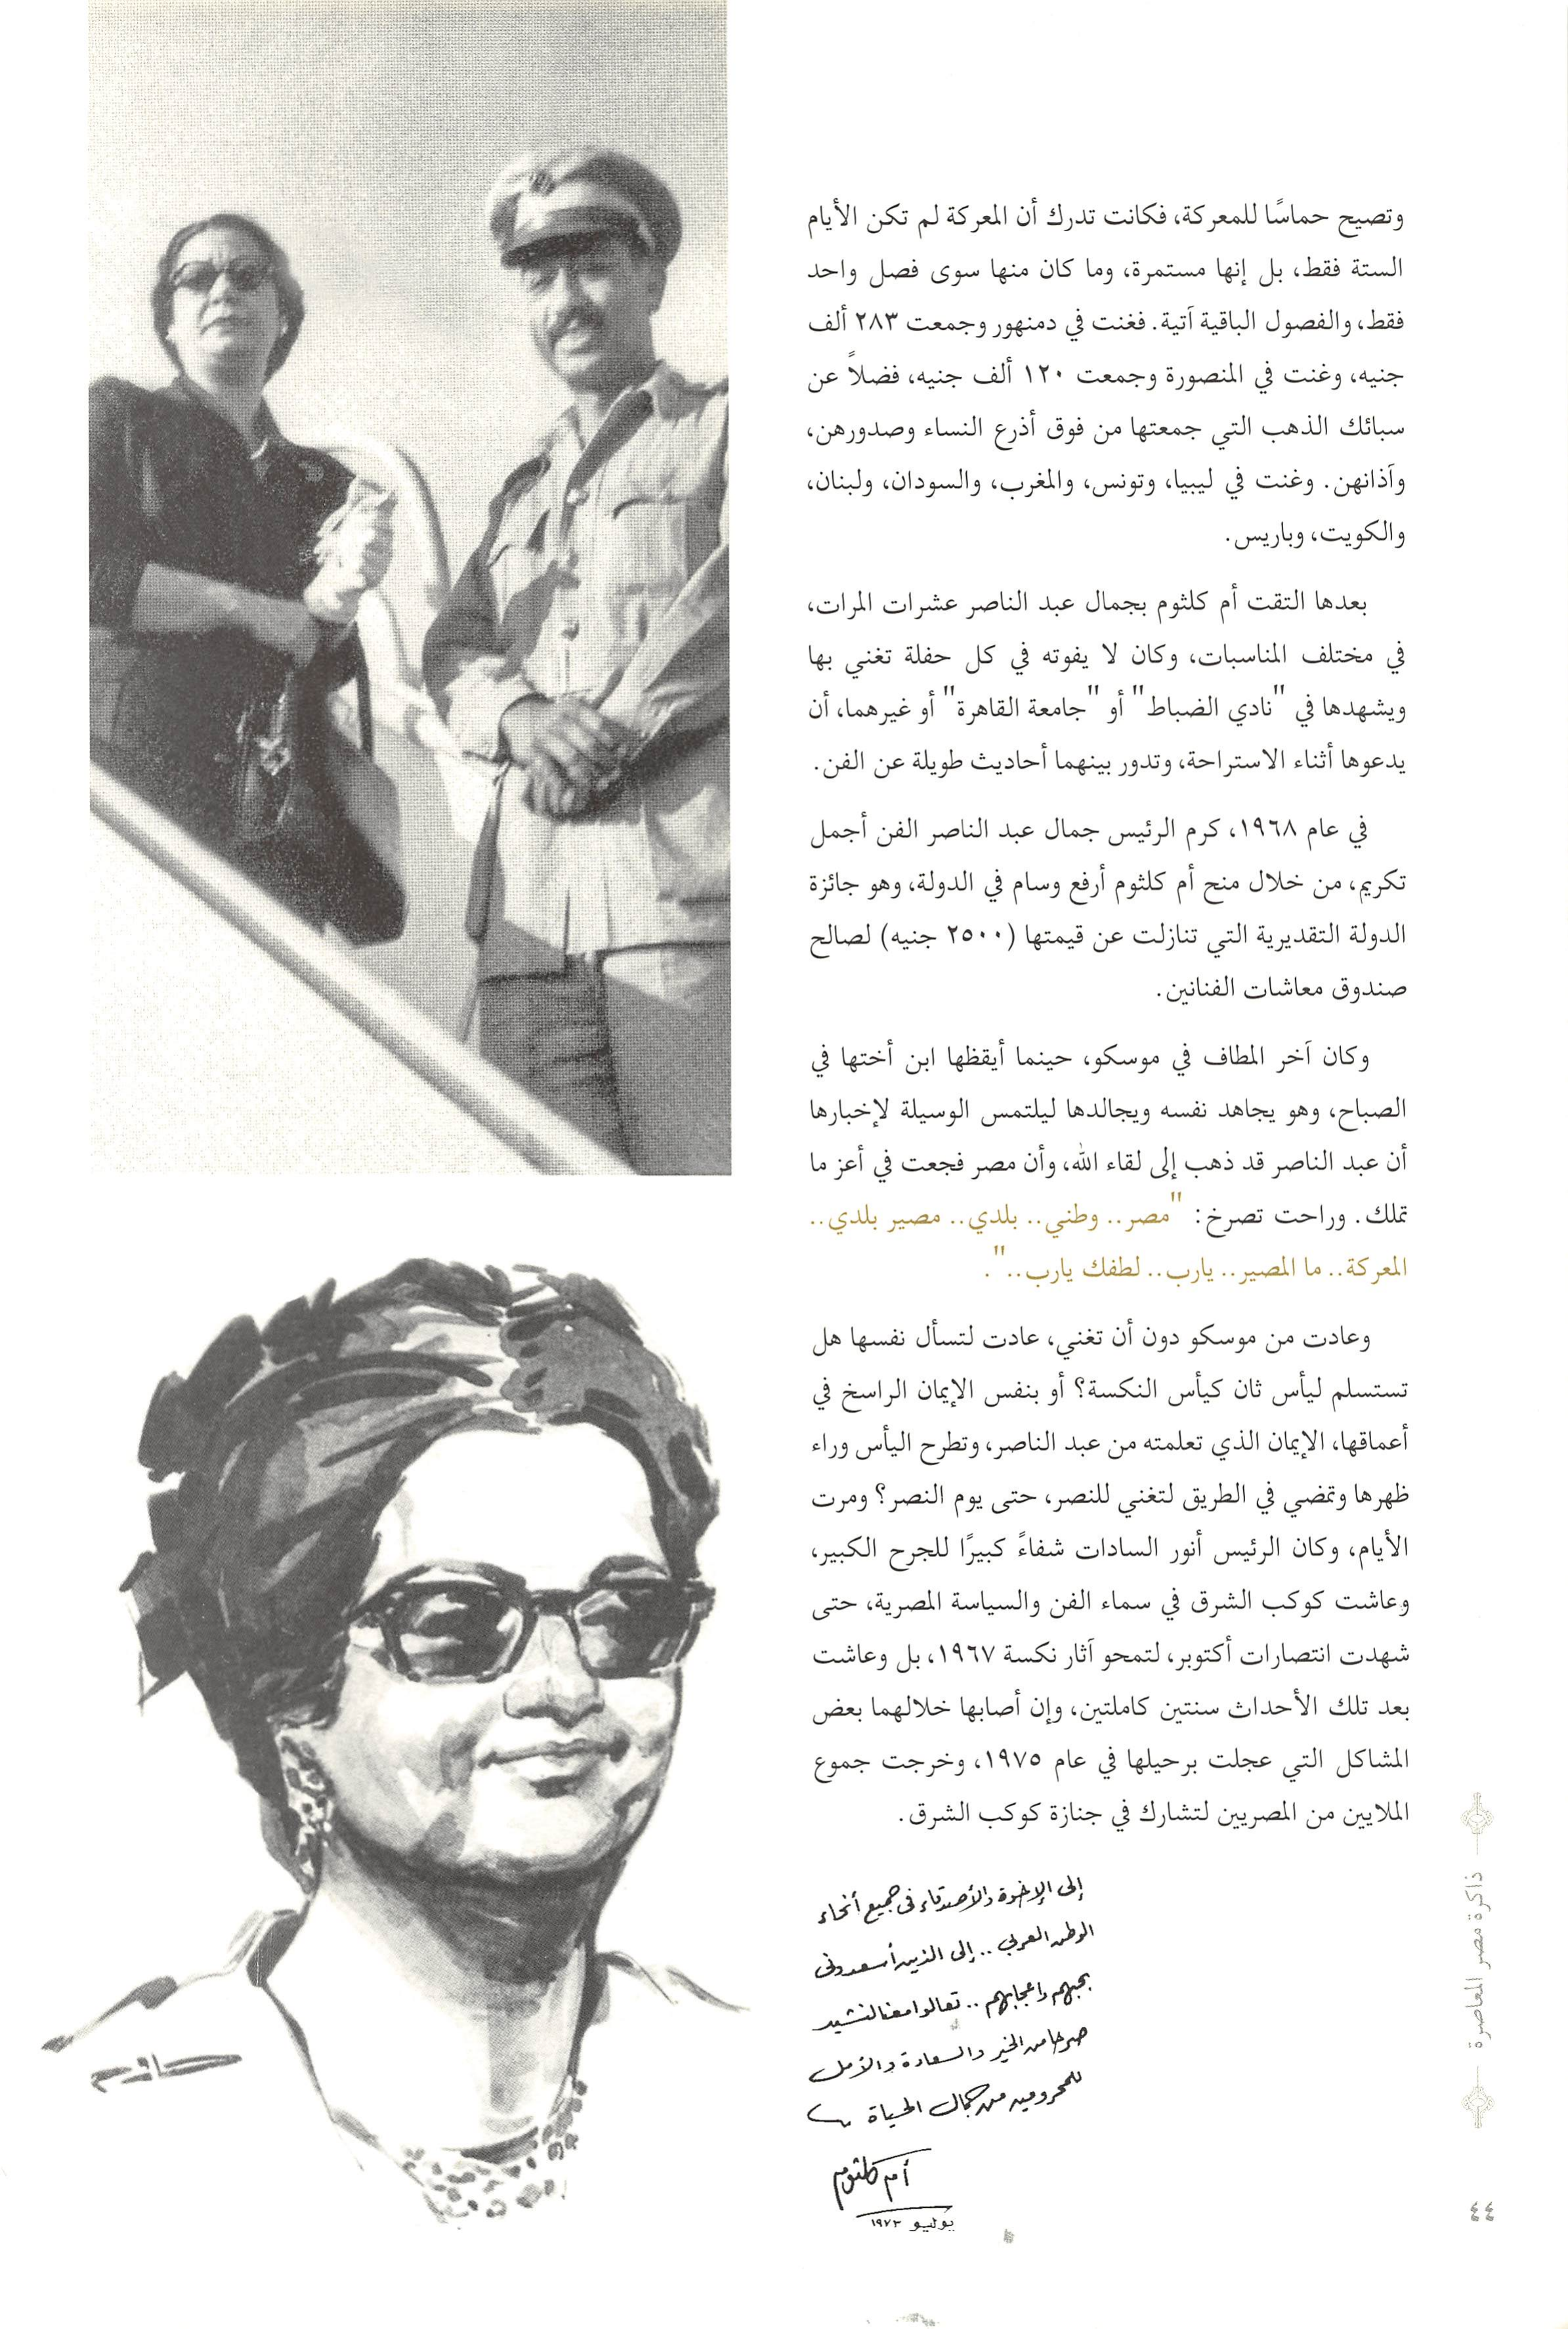 وتصيح حماسًا للمعركة، فكانت تدرك أن المعركة لم تكن الأيام
الستة فقط، بل إنها مستمرة، وما كان منها سوى فصل واحد
فقط، والفصول الباقية آتية. فغنت في دمنهور وجمعت ٢٨٣ ألف
جنيه، وغنت في المنصورة وجمعت ١٢٠ ألف جنيه، فضلاً عن
سبائك الذهب التي جمعتها من فوق أذرع النساء وصدورهن،
وآذانهن. وغنت في ليبيا، وتونس، والمغرب، والسودان، ولبنان،
والكويت، وباريس.
بعدها التقت أم كلثوم بجمال عبد الناصر عشرات المرات،
في مختلف المناسبات، وكان لا يفوته في كل حفلة تغني بها
ويشهدها في "نادي الضباط" أو "جامعة القاهرة" أو غيرهما، أن
يدعوها أثناء الاستراحة، وتدور بينهما أحاديث طويلة عن الفن.
في عام ١٩٦٨، كرم الرئيس جمال عبد الناصر الفن أجمل
تكريم، من خلال منح أم كلثوم أرفع وسام في الدولة، وهو جائزة
الدولة التقديرية التي تنازلت عن قيمتها (٢٥٠٠ جنيه) لصالح
صندوق معاشات الفنانين.
وكان آخر المطاف في موسكو، حينما أيقظها ابن أختها في
الصباح، وهو يجاهد نفسه ويجالدها ليلتمس الوسيلة لإخبارها
أن عبد الناصر قد ذهب إلى لقاء الله، وأن مصر فجعت في أعز ما
تملك. وراحت تصرخ: "مصر.. وطني.. بلدي.. مصير بلدي..
المعركة.. ما المصير.. يارب.. لطفك يارب..".
وعادت من موسكو دون أن تغني، عادت لتسأل نفسها هل
تستسلم ليأس ثان كيأس النكسة؟ أو بنفس الإيمان الراسخ في
أعماقها، الإيمان الذي تعلمته من عبد الناصر، وتطرح اليأس وراء
ظهرها وتمضي في الطريق لتغني للنصر، حتى يوم النصر؟ ومرت
الأيام، وكان الرئيس أنور السادات شفاءً كبيرًا للجرح الكبير،
وعاشت كوكب الشرق في سماء الفن والسياسة المصرية، حتى
شهدت انتصارات أكتوبر، لتمحو آثار نكسة ١٩٦٧، بل وعاشت
بعد تلك الأحداث سنتين كاملتين، وإن أصابها خلالهما بعض
المشاكل التي عجلت برحيلها في عام ١٩٧٥، وخرجت جموع
الملايين من المصريين لتشارك في جنازة كوكب الشرق.
إلى الإخوة والأصدقاء فى جميع أنحاء
الوطن العربى .. إلى الذين أسعدونى
بحبهم وإعجابهم .. تعالوا معنا لنشيد
صرحا من الخير والسعادة والأمل
للمحرومين من جمال الحياة
أم كلثوم
يوليو ١٩٧٣
ذاكرة مصر المعاصرة
٤٤